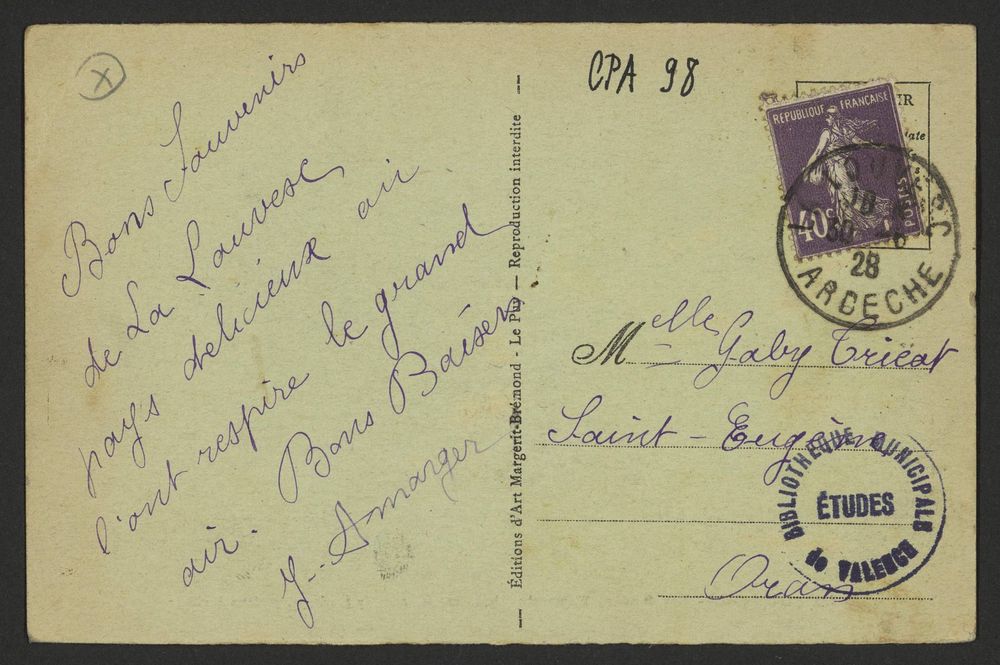 X
Bons Souvenirs
de La Louvesc
pays delicieux air
l'ont respire le grand
air. Bons Baisers
Y. Amarger
Editions d'Art Margerit-Brémond - Le Puy — Reproduction interdite
CPA 98
IR
REPUBLIQUE FRANÇAISE
40
28
ARDECHE
Melle Gaby Tricot
Saint-Eugène
Oran
BIBLIOTHEQUE MUNICIPALE
ÉTUDES
de VALENCE